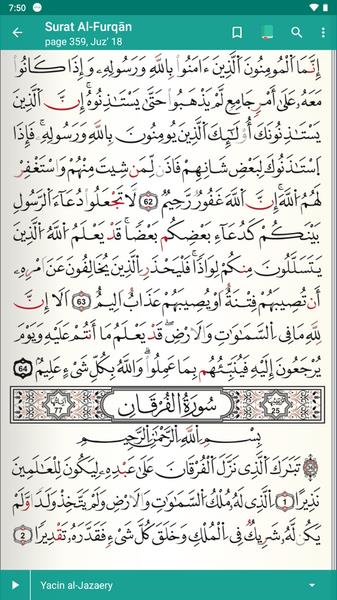 7:50
Surat Al-Furqān
page 359, Juz' 18
إِنَّمَا اَلْمُومِنُونَ اَلذِينَ ءَامَنُواْ بِاللَّهِ وَرَسُولِهِۦ وَإِذَا كَانُواْ
مَعَهُۥ عَلَىٰٓ أَمْرٖ جَامِعٖ لَّمْ يَذْهَبُواْ حَتَّىٰ يَسْتَٰذِنُوهُۖ إِنَّ اَلذِينَ
يَسْتَٰذِنُونَكَ أُوْلَٰٓئِكَ اَلذِينَ يُومِنُونَ بِاللَّهِ وَرَسُولِهِۦۖ فَإِذَا
اَسْتَٰذَنُوكَ لِبَعْضِ شَانِهِمْ فَاذَن لِّمَن شِيتَ مِنْهُمْ وَاسْتَغْفِرْ
لَهُمُ اُللَّهَۖ إِنَّ اَللَّهَ غَفُورٞ رَّحِيمٞ 62 لَّا تَجْعَلُواْ دُعَآءَ اَلرَّسُولِ
بَيْنَكُمْ كَدُعَآءِ بَعْضِكُم بَعْضاٗۖ قَدْ يَعْلَمُ اُللَّهُ اُلذِينَ
يَتَسَلَّلُونَ مِنكُمْ لِوَاذاٗۖ فَلْيَحْذَرِ اِلذِينَ يُخَالِفُونَ عَنَ اَمْرِهِۦٓ
أَن تُصِيبَهُمْ فِتْنَةٌ اَوْ يُصِيبَهُمْ عَذَابٌ اَلِيمٌۖ 63 اَلَآ إِنَّ
لِلهِ مَا فِے اِلسَّمَٰوَٰتِ وَالَارْضِۖ قَدْ يَعْلَمُ مَآ أَنتُمْ عَلَيْهِ وَيَوْمَ
يُرْجَعُونَ إِلَيْهِ فَيُنَبِّئُهُم بِمَا عَمِلُواْۖ وَاللَّهُ بِكُلِّ شَےْءٍ عَلِيمٌۖ 64
77 سُورَةُ الْفُرْقَانِ 25
بِسْمِ اِللَّهِ اِلرَّحْمَٰنِ اِلرَّحِيمِ
تَبَٰرَكَ اَلذِے نَزَّلَ اَلْفُرْقَانَ عَلَىٰ عَبْدِهِۦ لِيَكُونَ لِلْعَٰلَمِينَ
نَذِيراً 1 اِلذِے لَهُۥ مُلْكُ اُلسَّمَٰوَٰتِ وَالَارْضِ وَلَمْ يَتَّخِذْ وَلَداٗ وَلَمْ
يَكُن لَّهُۥ شَرِيكٞ فِے اِلْمُلْكِ وَخَلَقَ كُلَّ شَےْءٖ فَقَدَّرَهُۥ تَقْدِيراٗۖ 2
Yacin al-Jazaery